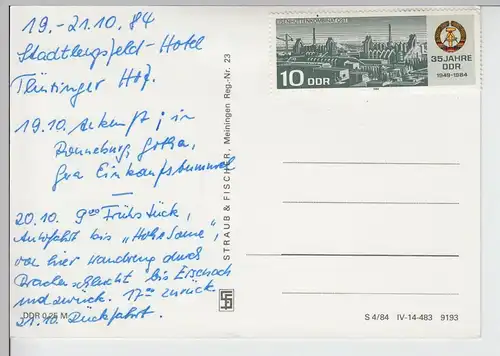 19.-21.10.84
Stadtlengsfeld-Hotel
Thüringer Hof.
19.10. Ankunft; in
Ronneburg, Gotha,
Gera Einkaufsbummel
—
20.10. 9⁰⁰ Frühstück,
Autofahrt bis „Hohe Sonne",
von hier Wandrung durch
Drachenschlucht bis Eisenach
und zurück. 17⁰⁰ zurück.
21.10. Rückfahrt.
DDR 0,25 M
STRAUB & FISCHER, Meiningen Reg.-Nr. 23
EISENHÜTTENKOMBINAT OST
10 DDR
35 JAHRE
DDR
1949-1984
S 4/84 IV-14-483 9193